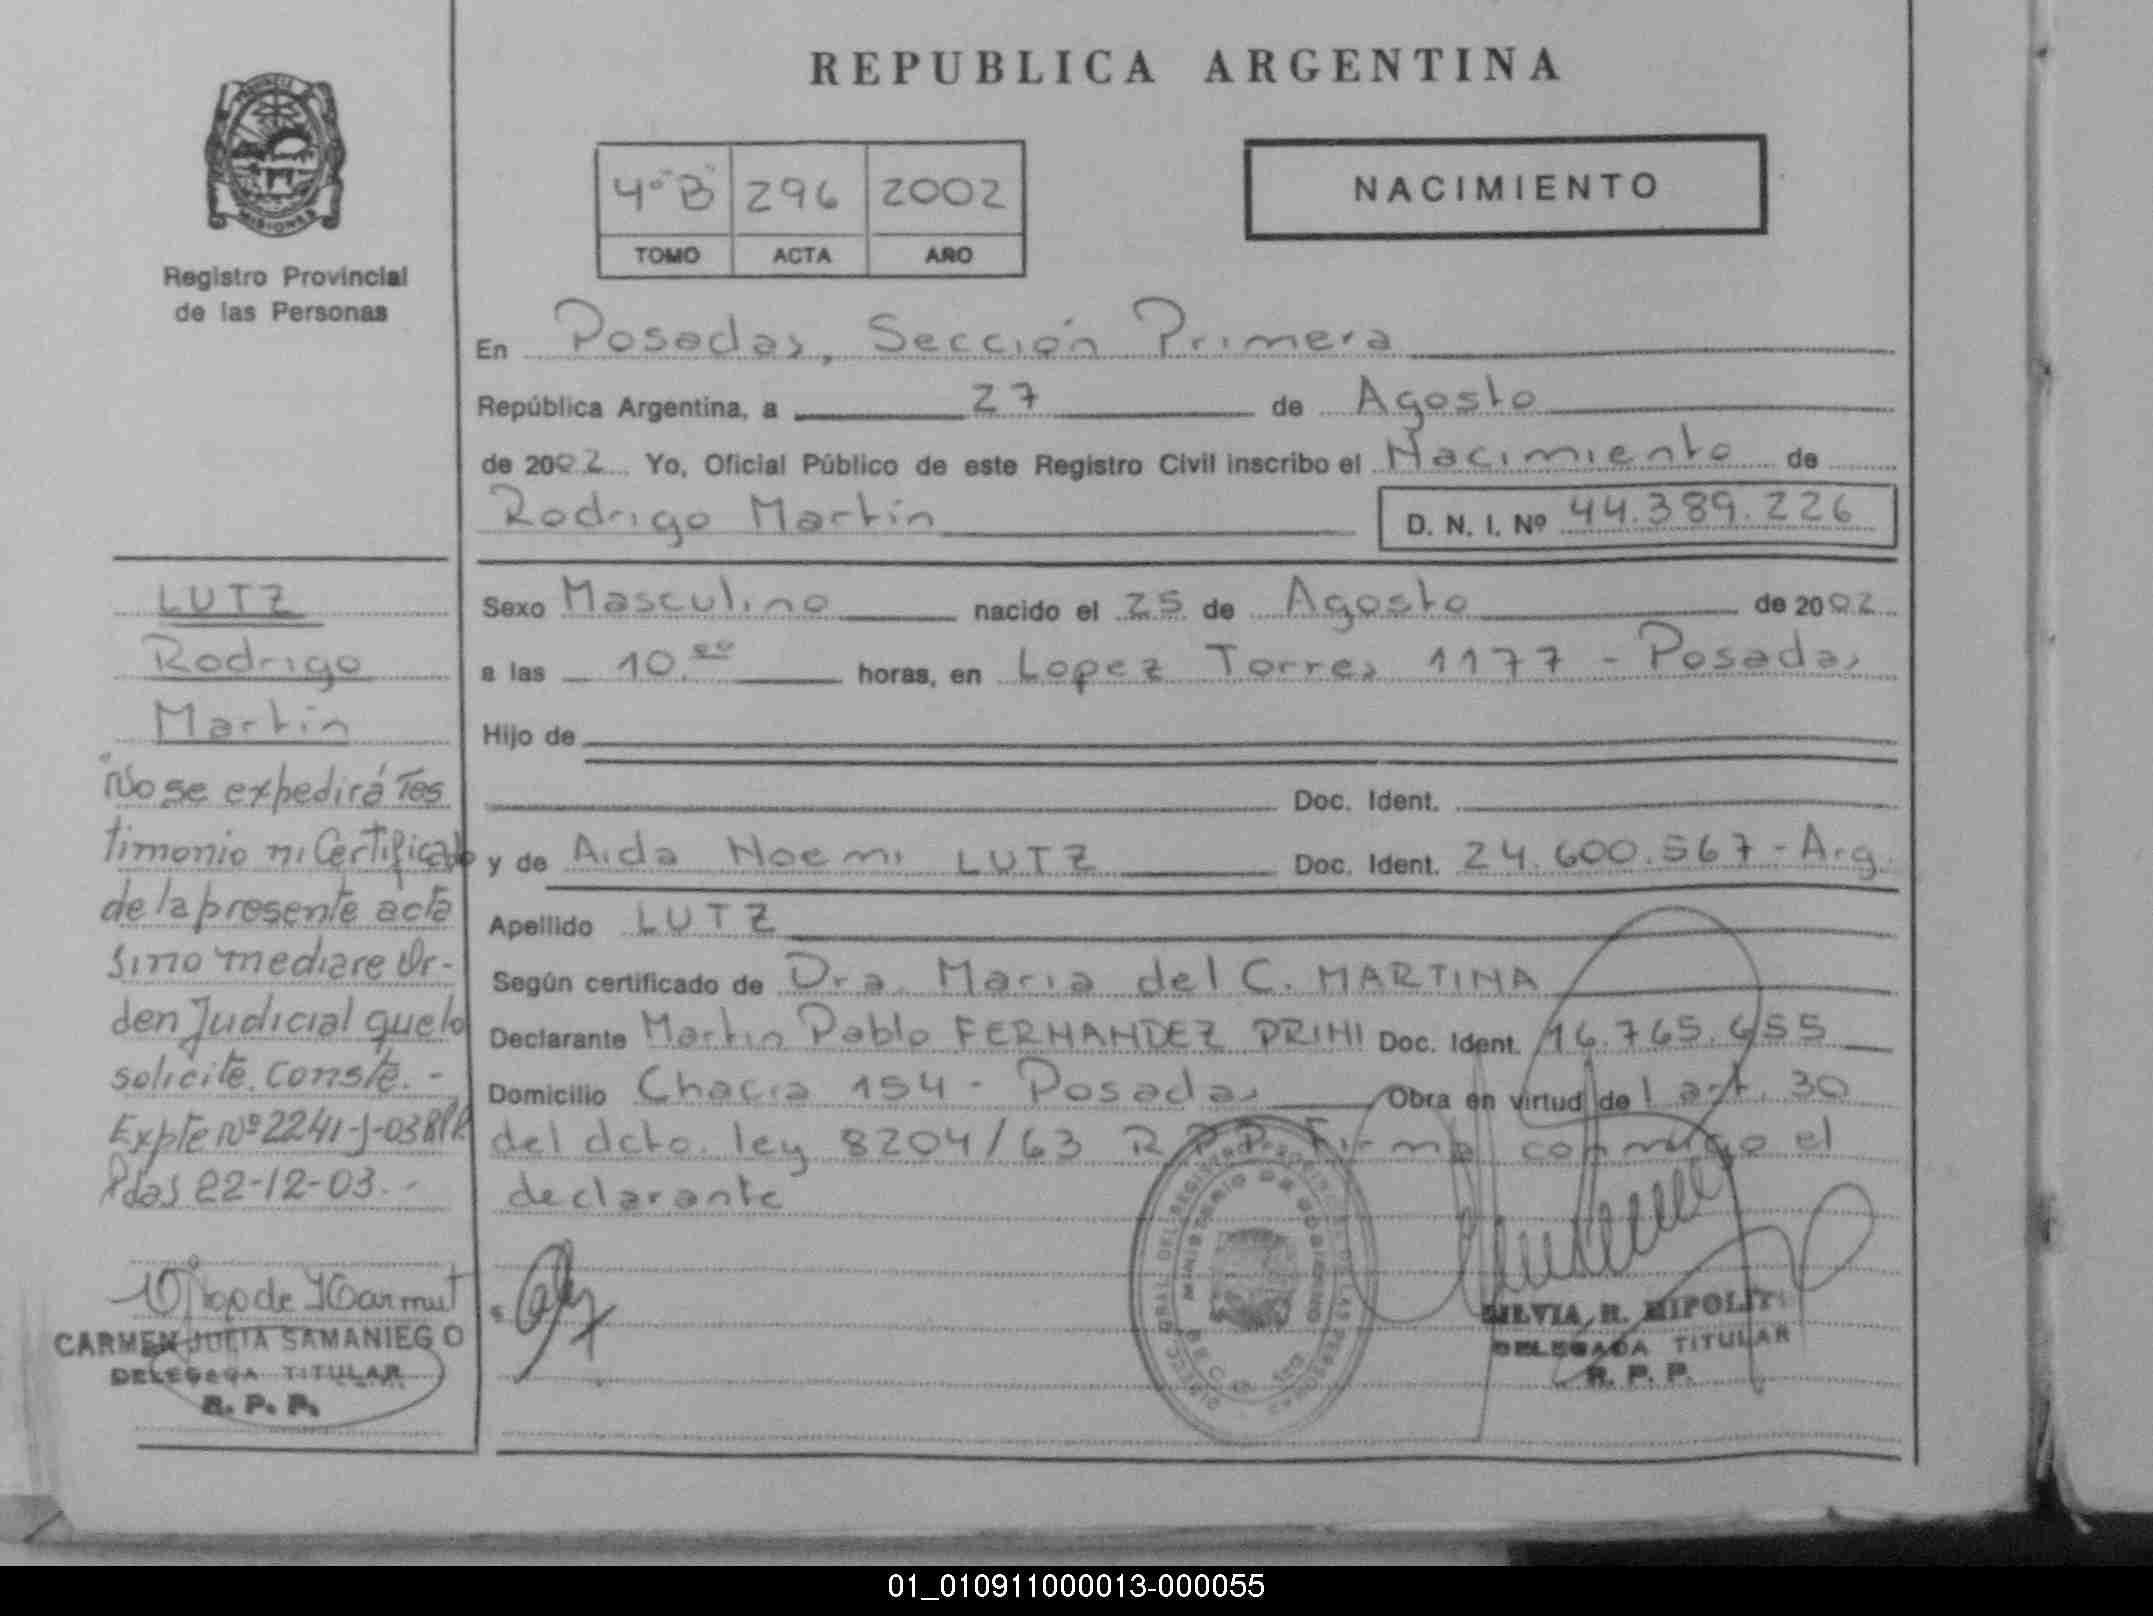 REPUBLICA ARGENTINA
MISIONES
Registro Provincial
de las Personas
4º "B" 296 2002
TOMO ACTA AÑO
NACIMIENTO
En Posadas, Sección Primera
República Argentina, a 27 de Agosto
de 2002 Yo, Oficial Público de este Registro Civil inscribo el Nacimiento de
Rodrigo Martín D. N. I. Nº 44.389.226
LUTZ
Rodrigo
Martín
Sexo Masculino nacido el 25 de Agosto de 2002
a las 10.00 horas, en Lopez Torres 1177 - Posadas
Hijo de
Doc. Ident.
y de Aida Noemi LUTZ Doc. Ident. 24.600.567 - Arg.
Apellido LUTZ
Según certificado de Dra. Maria del C. MARTINA
Declarante Martin Pablo FERNANDEZ PRINI Doc. Ident. 16.765.655
Domicilio Chacra 154 - Posadas Obra en virtud de l art. 30
del dcto. ley 8204/63 R.P.P. Firma conmigo el
declarante
"No se expedirá Tes
timonio ni Certificado
de la presente acta
sino mediare Or-
den Judicial que lo
solicite. Conste. -
Expte Nº 2241-J-03
Pdas 22-12-03. -
CARMEN JULIA SAMANIEGO
DELEGADA TITULAR
R. P. P.
MINISTERIO DE GOBIERNO
SILVIA R. HIPOLITO
DELEGADA TITULAR
R. P. P.
01_010911000013-000055